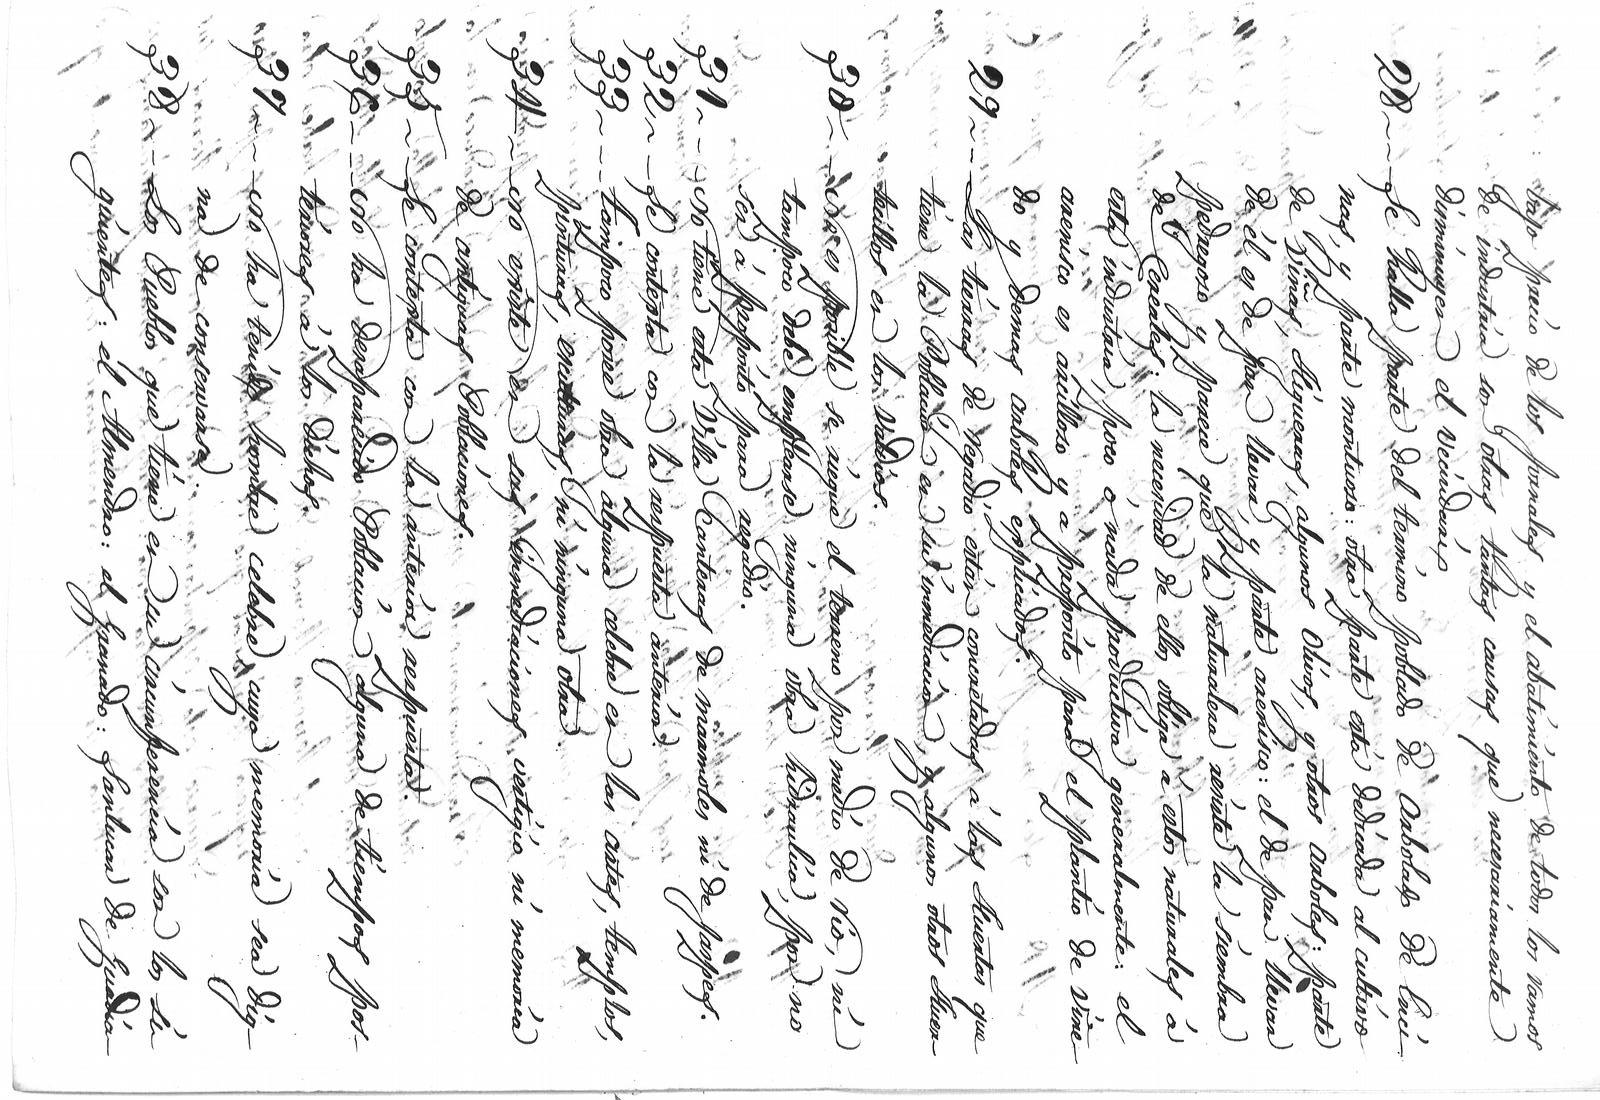 bajo precio de los jornales y el abatimiento de todos los ramos
de industria son otras tantas causas que necesariamente
diminuyen el vecindario
28 -- Se halla parte del termino poblado de Arbolado de Enci-
nas, y parte montuoso: otra parte está dedicada al cultivo
de Viñas, Higueras, algunos Olivos, y otros arboles: parte
de él es de pan llevar, y parte arenisco: el de pan llevar
pedregoso y parece que la naturaleza resiste la siembra
de Cereales; la necesidad de ellos obliga á estos naturales á
esta industria, poco ó nada productiva generalmente: el
arenisco es arcilloso y a proposito para el plantio de viñe-
do y demas arboles esplicados.
29 -- Las tierras de regadio están concretadas á las Huertas que
tiene la Poblacion en su inmediacion, y algunos otros Huer-
tecillos en los valdios.
30 -- No es posible se riegue el terreno por medio de rio, ni
tampoco debe emplearse ninguna obra hidraulica, por no
ser á proposito para regadio.
31 -- No tiene esta Villa Canteras de marmoles ni de jaspes.
32 -- Se contesta con la respuesta anterior.
33 -- Tampoco posee obra alguna celebre en las artes, templos,
pinturas, esculturas, ni ninguna otra.
34 -- No existe en sus inmediaciones vestigio ni memoria
de antiguas Poblaciones.
35 -- Se contesta con la anterior respuesta.
36 -- No ha desaparecido Poblacion alguna de tiempos pos-
teriores á los dichos.
37 -- No ha tenido hombre celebre cuya memoria sea dig-
na de conservarse.
38 -- Los Pueblos que tiene en su circunferencia son los si-
guientes: el Almendro: el Granado: Sanlucar de Guadia-